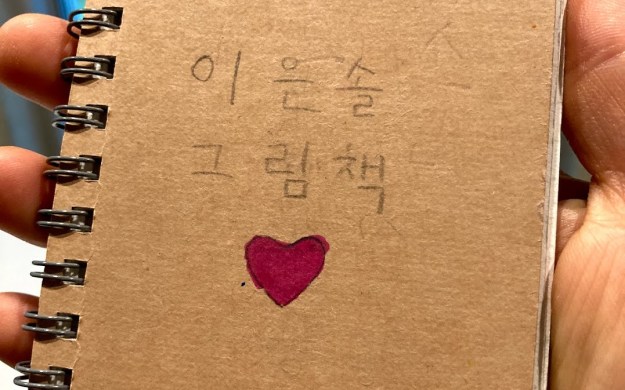 이은솔
그림책